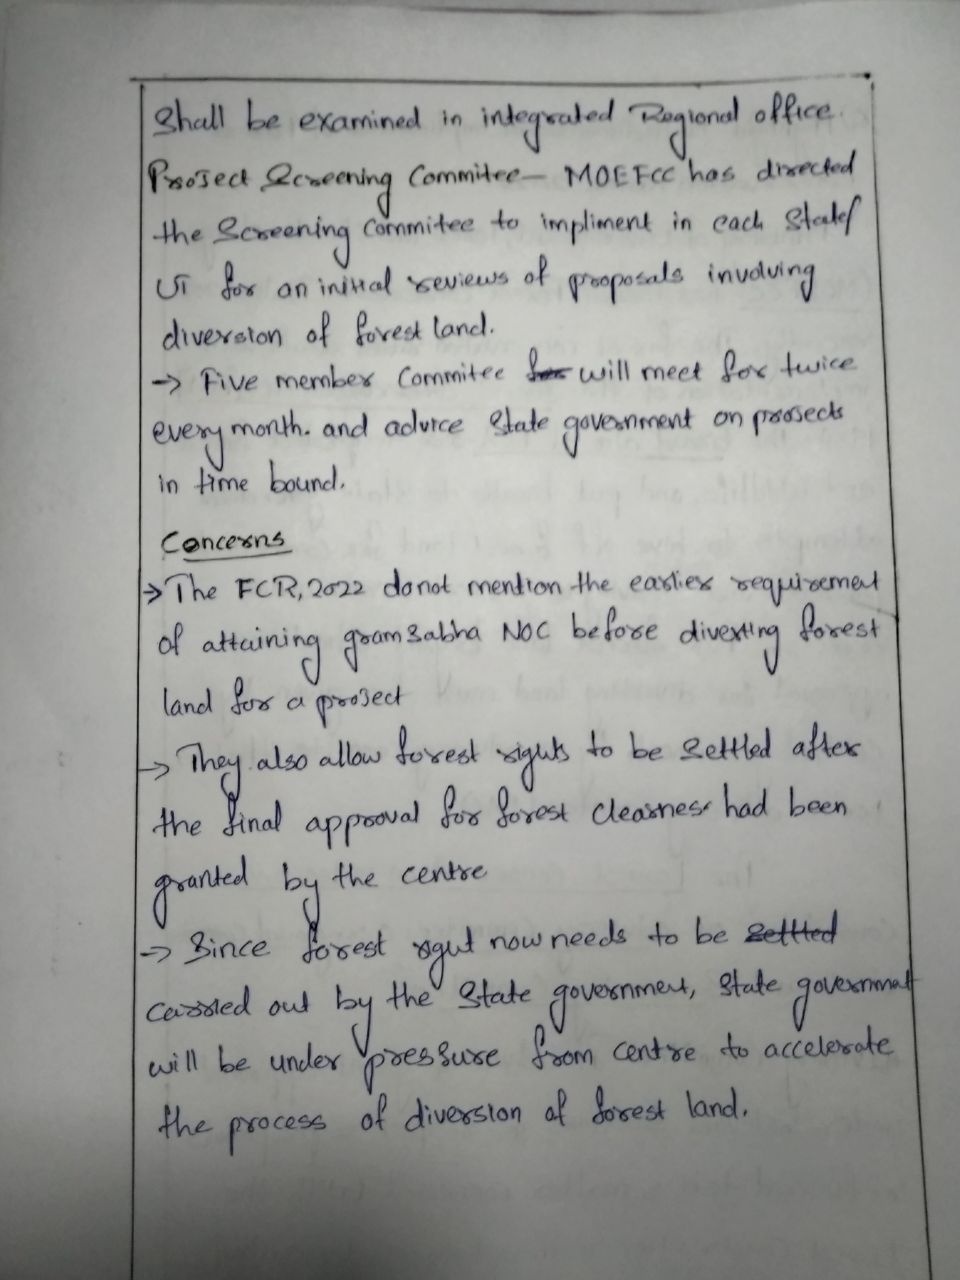 Shall be examined in integrated Regional office.
Project Screening Commitee - MOEFCC has directed
the Screening Commitee to impliment in each State/
UT for an initial reviews of proposals involving
diversion of forest land.
→ Five member Commitee for will meet for twice
every month. and advice State government on projects
in time bound.
Concerns
→ The FCR, 2022 do not mention the earlier requirement
of attaining gram Sabha NOC before diverting forest
land for a project
→ They also allow forest rights to be Settled after
the final approval for forest clearness had been
granted by the centre
→ Since forest right now needs to be Settled
carried out by the State government, State government
will be under pressure from centre to accelerate
the process of diversion of forest land.